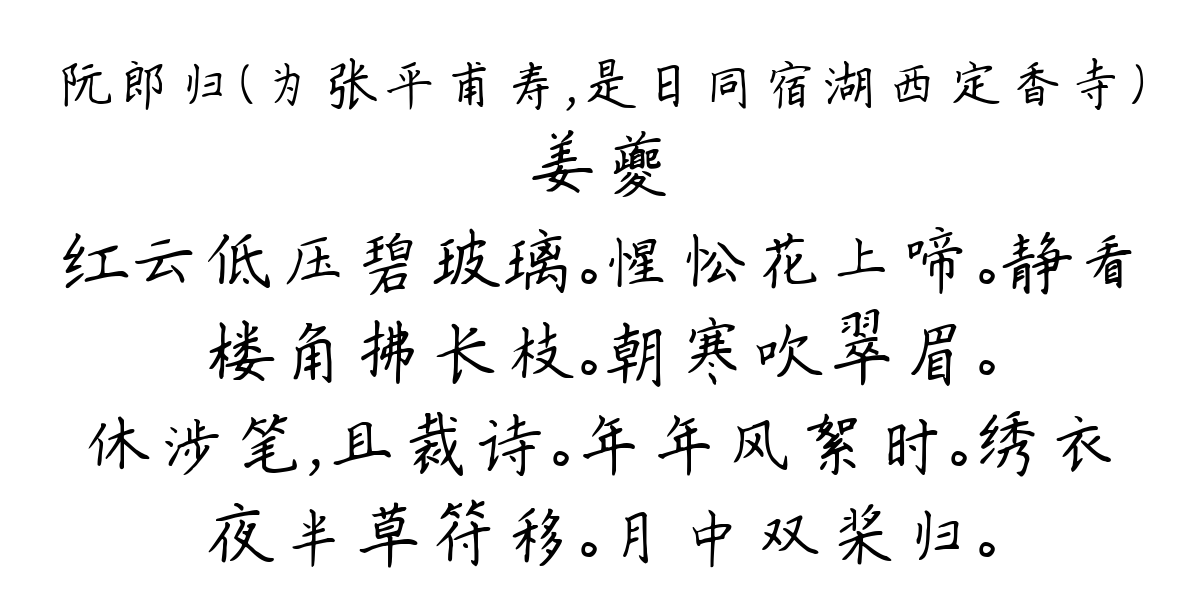 阮郎归(为张平甫寿,是日同宿湖西定香寺)
姜夔
红云低压碧玻璃。惺忪花上啼。静看
楼角拂长枝。朝寒吹翠眉。
休涉笔,且裁诗。年年风絮时。绣衣
夜半草符移。月中双桨归。